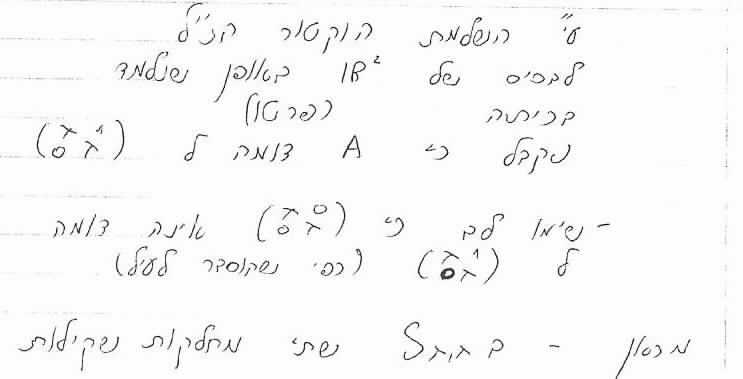 ע"י השלמת הוקטור הנ"ל
לבסיס של ℝ² באופן שנלמד
בכיתה (פרטו)
נקבל כי A דומה ל (λ 1 0 λ)
- נשים לב כי (λ 0 0 λ) אינה דומה
ל (λ 1 0 λ) (כפי שהוסבר לעיל)
מכאן - ב Sλ,λ שתי מחלקות שקילות